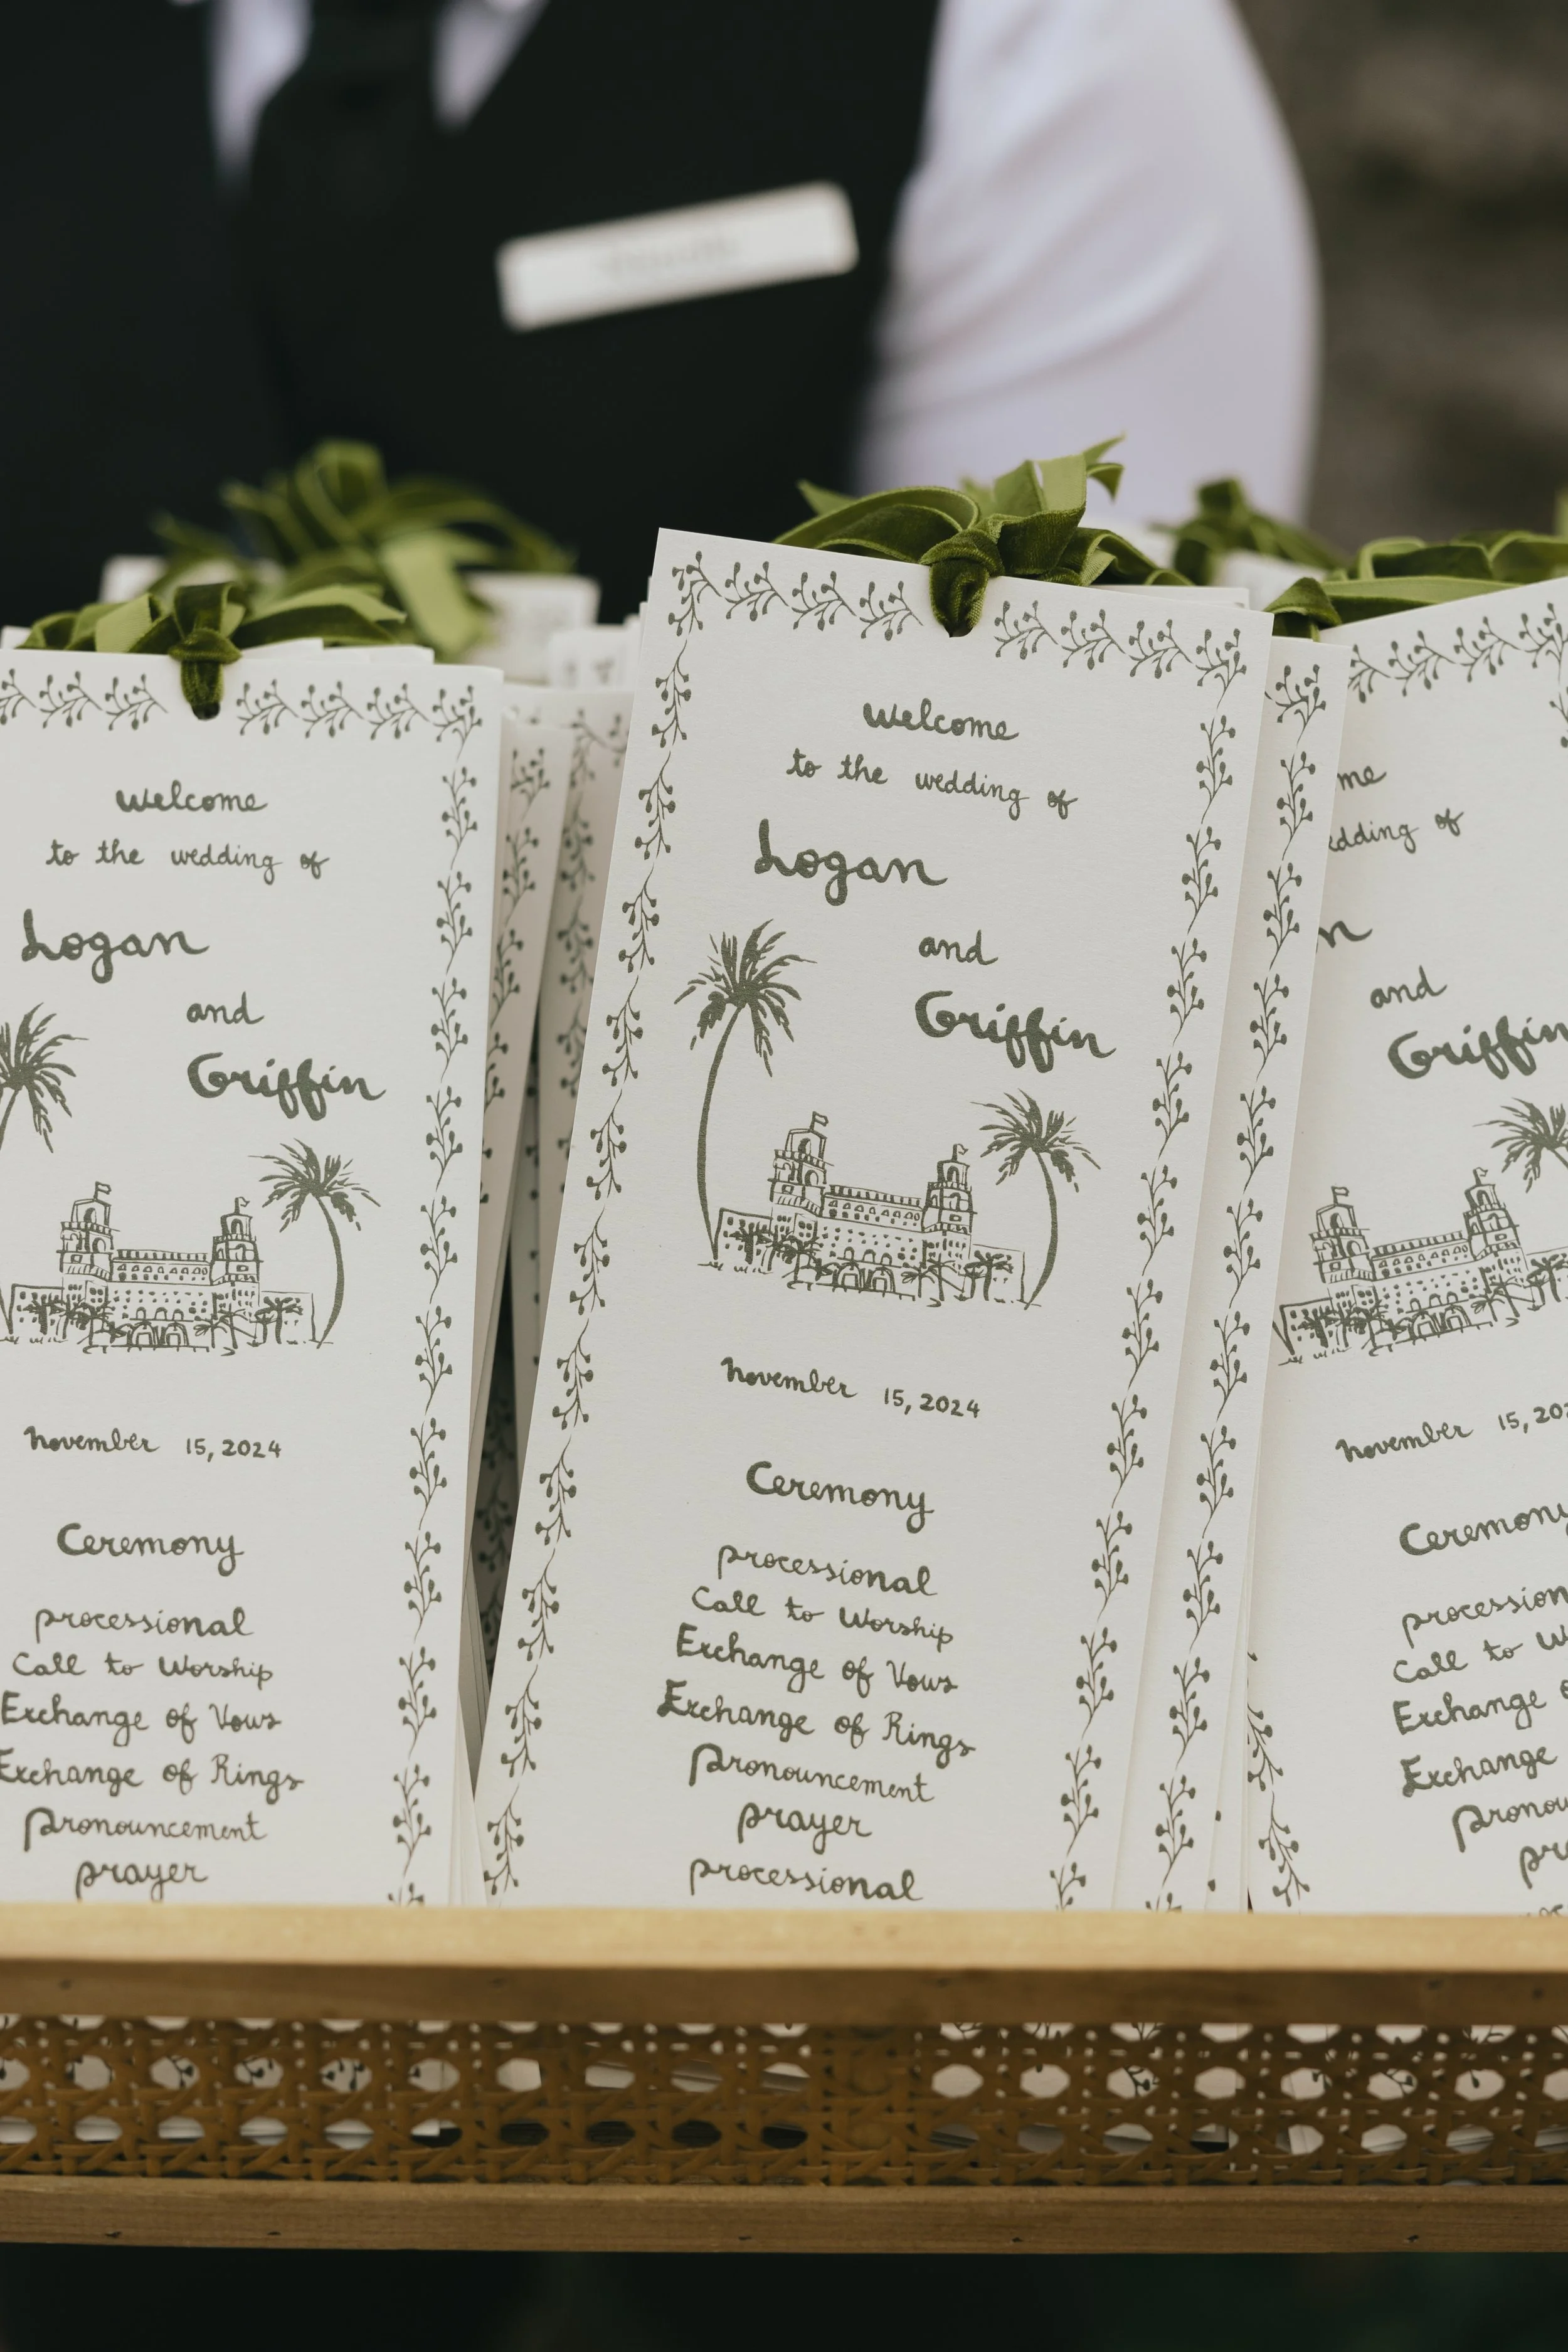 Welcome
to the wedding of
Logan
and
Griffin
November 15, 2024
Ceremony
processional
Call to Worship
Exchange of Vows
Exchange of Rings
Pronouncement
prayer
Welcome
to the wedding of
Logan
and
Griffin
November 15, 2024
Ceremony
processional
Call to Worship
Exchange of Vows
Exchange of Rings
Pronouncement
prayer
processional
me
edding of
n
and
Griffin
November 15, 202
Ceremony
procession
Call to W
Exchange o
Exchange
Pronou
pr